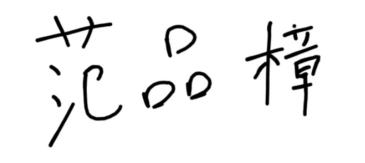 范品樟